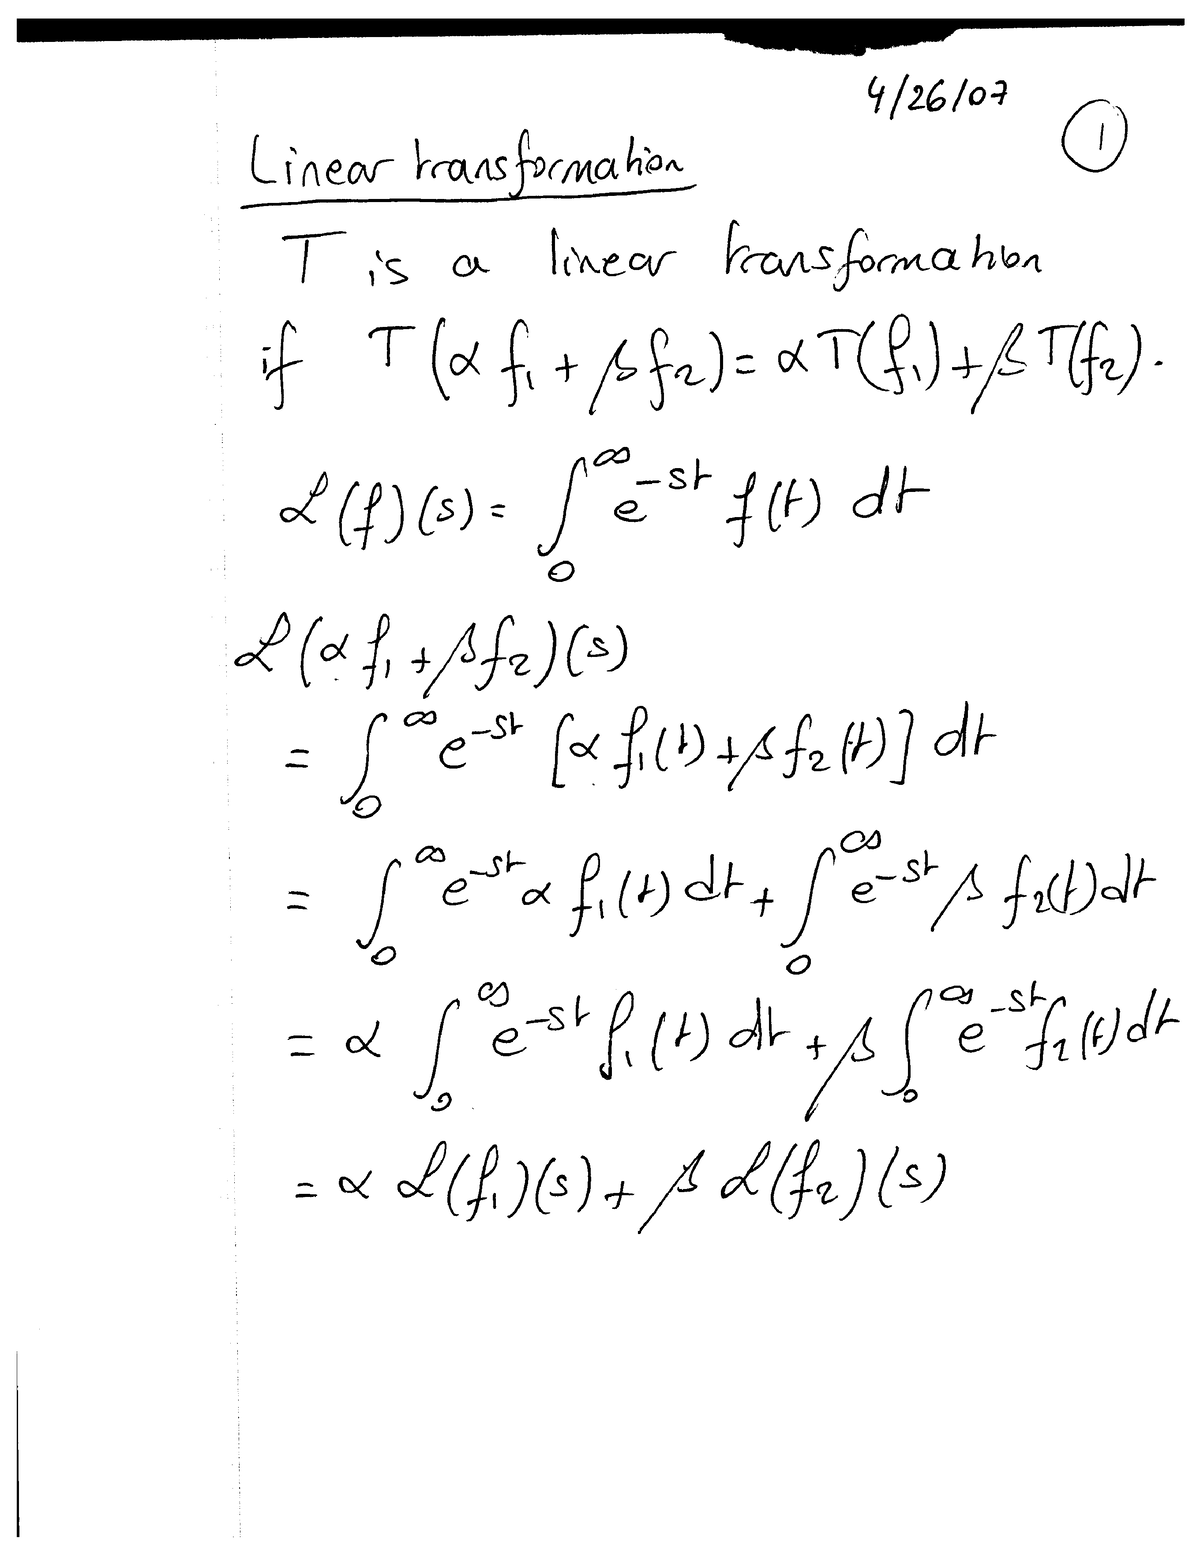 4/26/07
1
Linear transformation
T is a linear transformation
if T(α f₁ + β f₂) = α T(f₁) + β T(f₂).
ℒ(f)(s) = ∫₀^∞ e^{-st} f(t) dt
ℒ(α f₁ + β f₂)(s)
= ∫₀^∞ e^{-st} [α f₁(t) + β f₂(t)] dt
= ∫₀^∞ e^{-st} α f₁(t) dt + ∫₀^∞ e^{-st} β f₂(t) dt
= α ∫₀^∞ e^{-st} f₁(t) dt + β ∫₀^∞ e^{-st} f₂(t) dt
= α ℒ(f₁)(s) + β ℒ(f₂)(s)